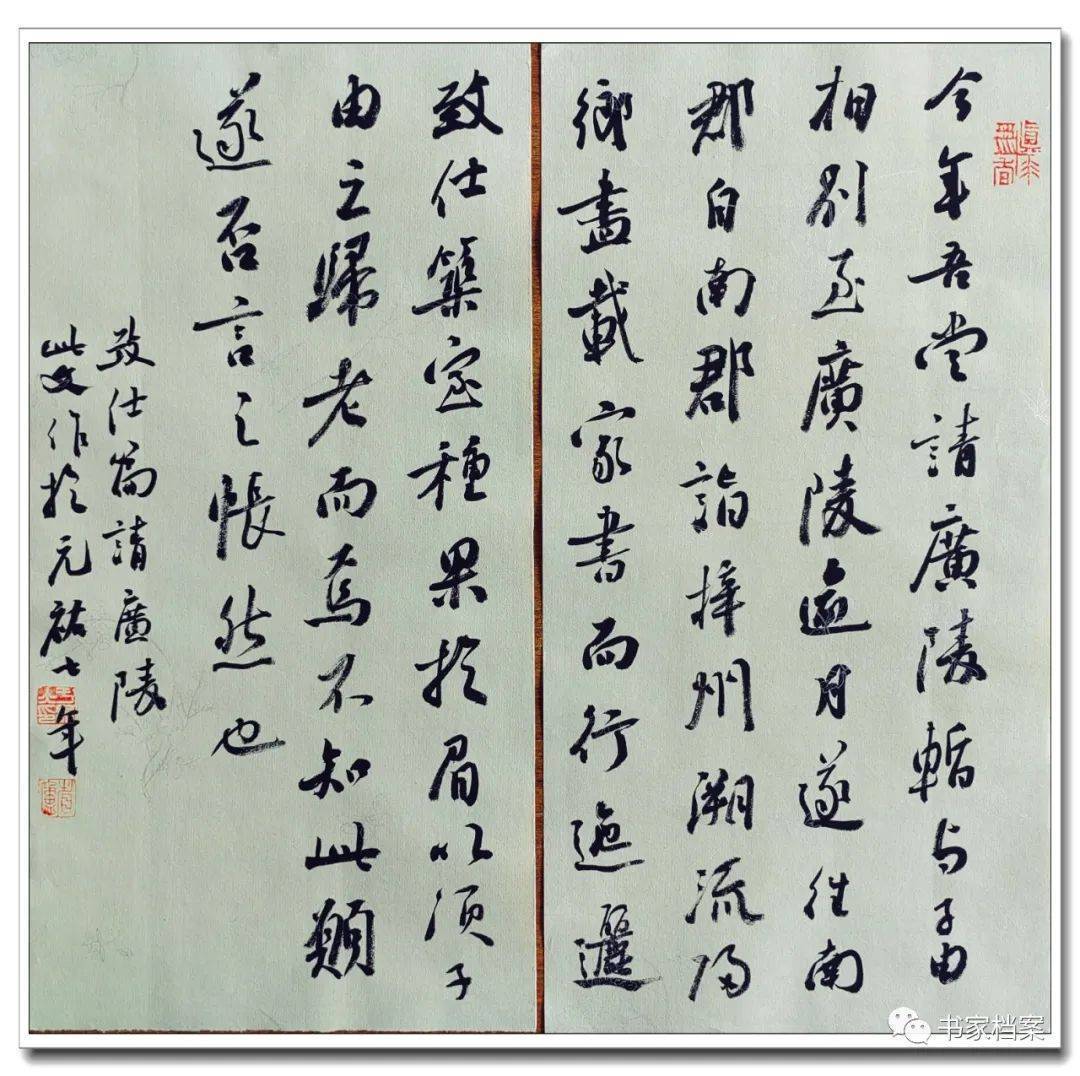 真水無香
今年吾當請廣陵暫与子由
相別至廣陵逾月遂往南
郡自南郡詣梓州溯流歸
鄉盡載家書而行迤邐
致仕築室種果扵眉以須子
由之歸老而焉不知此願
遂否言之悵然也
致仕篇請廣陵
此文作扵元祐七年
书家档案